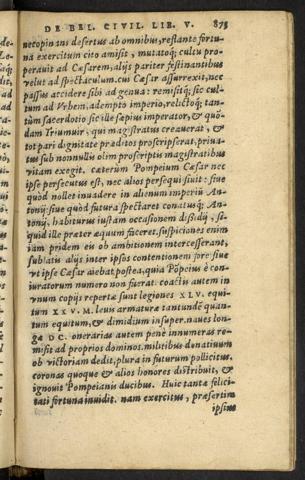 DE BEL. CIVIL. LIB. V. 875
necopinans desertus ab omnibus, restante fortu
na exercitum cito amisit, mutatoq; cultu pro
peravit ad Cæsarem, alijs pariter festinantibus
velut ad spectaculum. cui Cæsar assurrexit, nec
passus accidere sibi ad genua: remisitq; sic cul-
tum ad Vrbem, adempto imperio, relictoq; tan-
tùm sacerdotio sic ille sæpius imperator, & quo
dam Triumuir, qui magistratus creauerat, &
tot pari dignitate præditos proscripserat, priua-
tus sub nonnullis olim proscriptis magistratibus
vitam exegit. cæterùm Pompeium Cæsar nec
ipse persecutus est, nec alios persequi siuit: siue
quòd nollet inuadere in alienum imperiũ An-
tonij: siue quòd futura spectaret conatusq; An-
tonij, habiturus iustam occasionem dißidij, si-
quid ille præter æquum faceret. suspiciones enim
iam pridem eis ob ambitionem intercesserant,
sublatis alijs inter ipsos contentionem fore: siue
vt ipse Cæsar aiebat postea, quia Põpeius è con-
iuratorum numero non fuerat. coactis autem in
vnum copijs repertæ sunt legiones XLV. equi
tum XXV.M. leuis armaturæ tantundẽ quan-
tum equitum, & dimidium insuper. naues lon-
gæ DC. onerarias autem penè innumeras re-
misit ad proprios dominos. militibus donatiuum
ob victoriam dedit, plura in futurum pollicitus.
coronas quoque & alios honores distribuit, &
ignouit Pompeianis ducibus. Huic tantæ felici
tati fortuna inuidit. nam exercitus, præsertim
ipsius